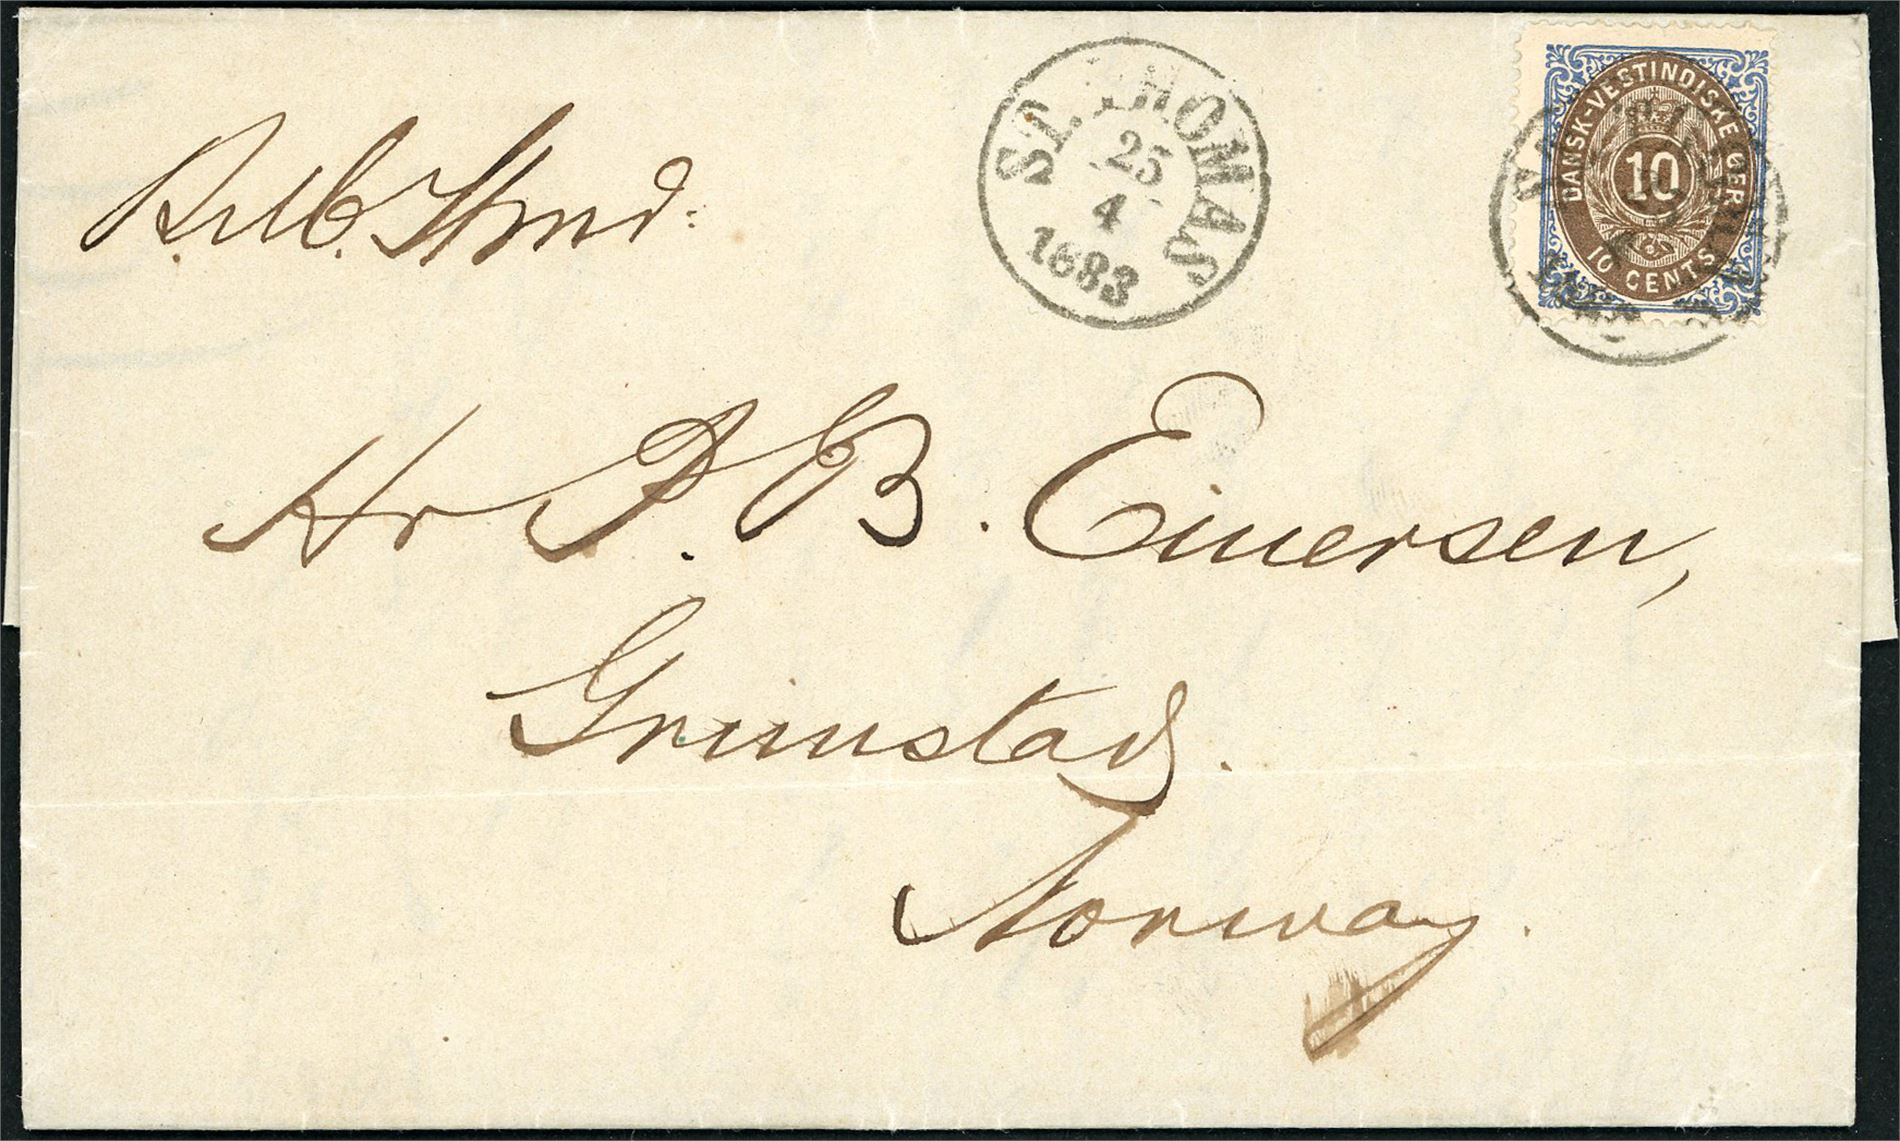 ST. THOMAS
25
4
1883
DANSK-VESTINDISKE ØER
10
10 CENTS
Hr P. B. Eiversen,
Grimstad.
Norway.